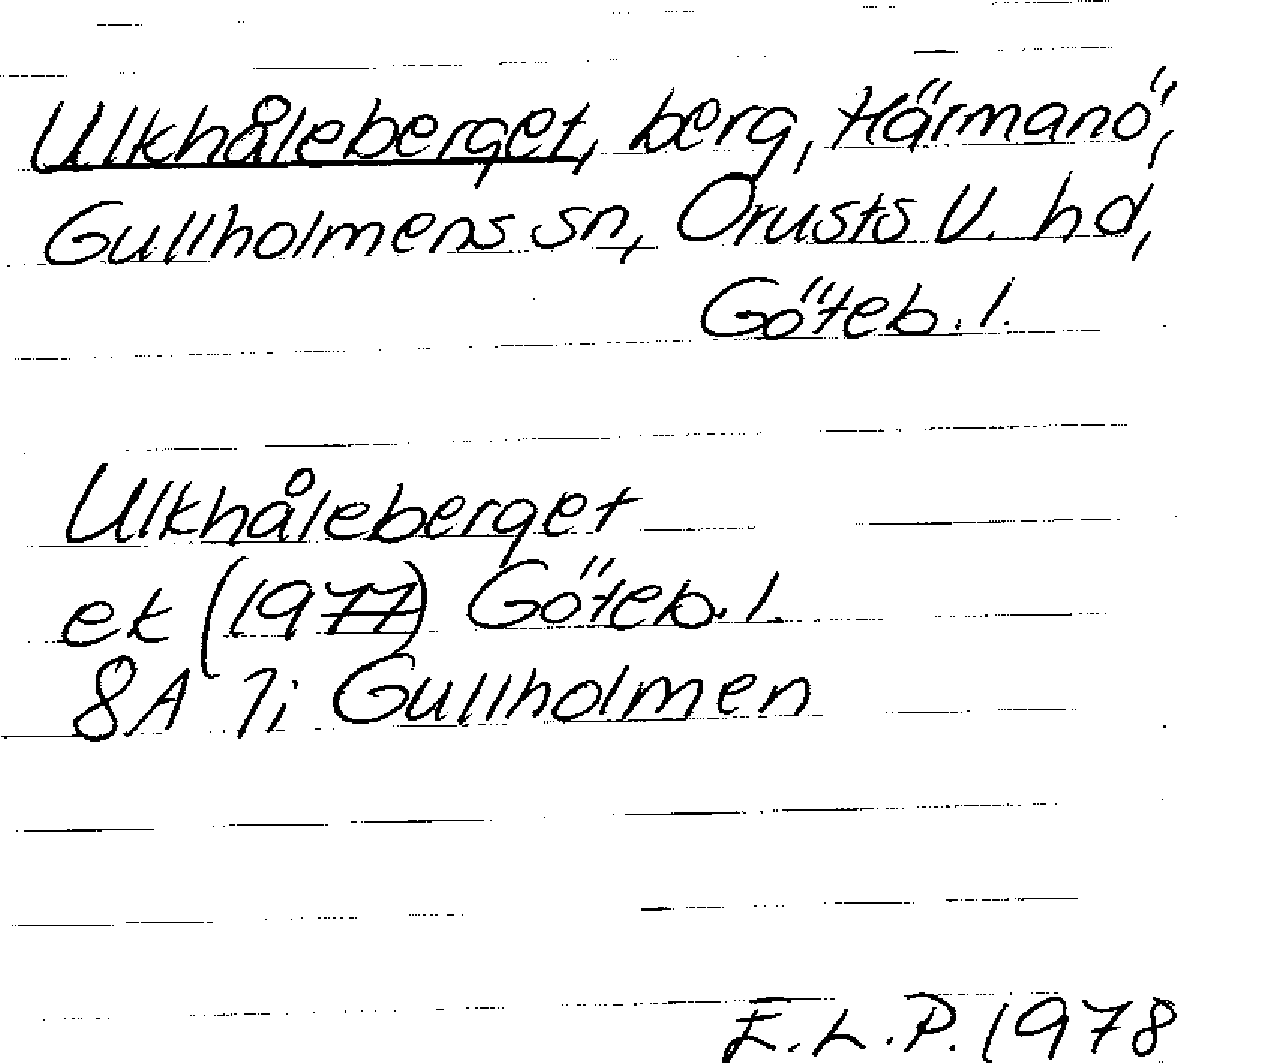 Ulkhåleberget, berg, Härmanö,
Gullholmens sn, Orusts V. hd,
Göteb. l.
Ulkhåleberget
ek (1977) Göteb. l.
8A 7i Gullholmen
E.L.P. 1978